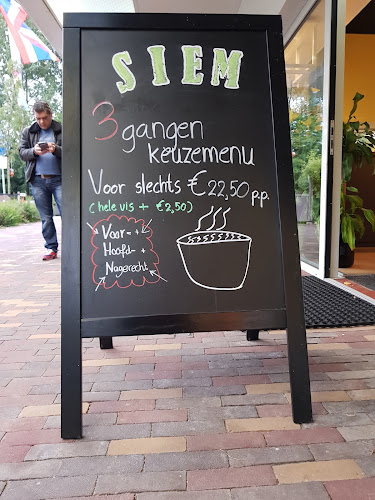 SIEM
3 gangen
keuzemenu
Voor slechts € 22,50 p.p.
(hele vis + € 2,50)
Voor- +
Hoofd- +
Nagerecht